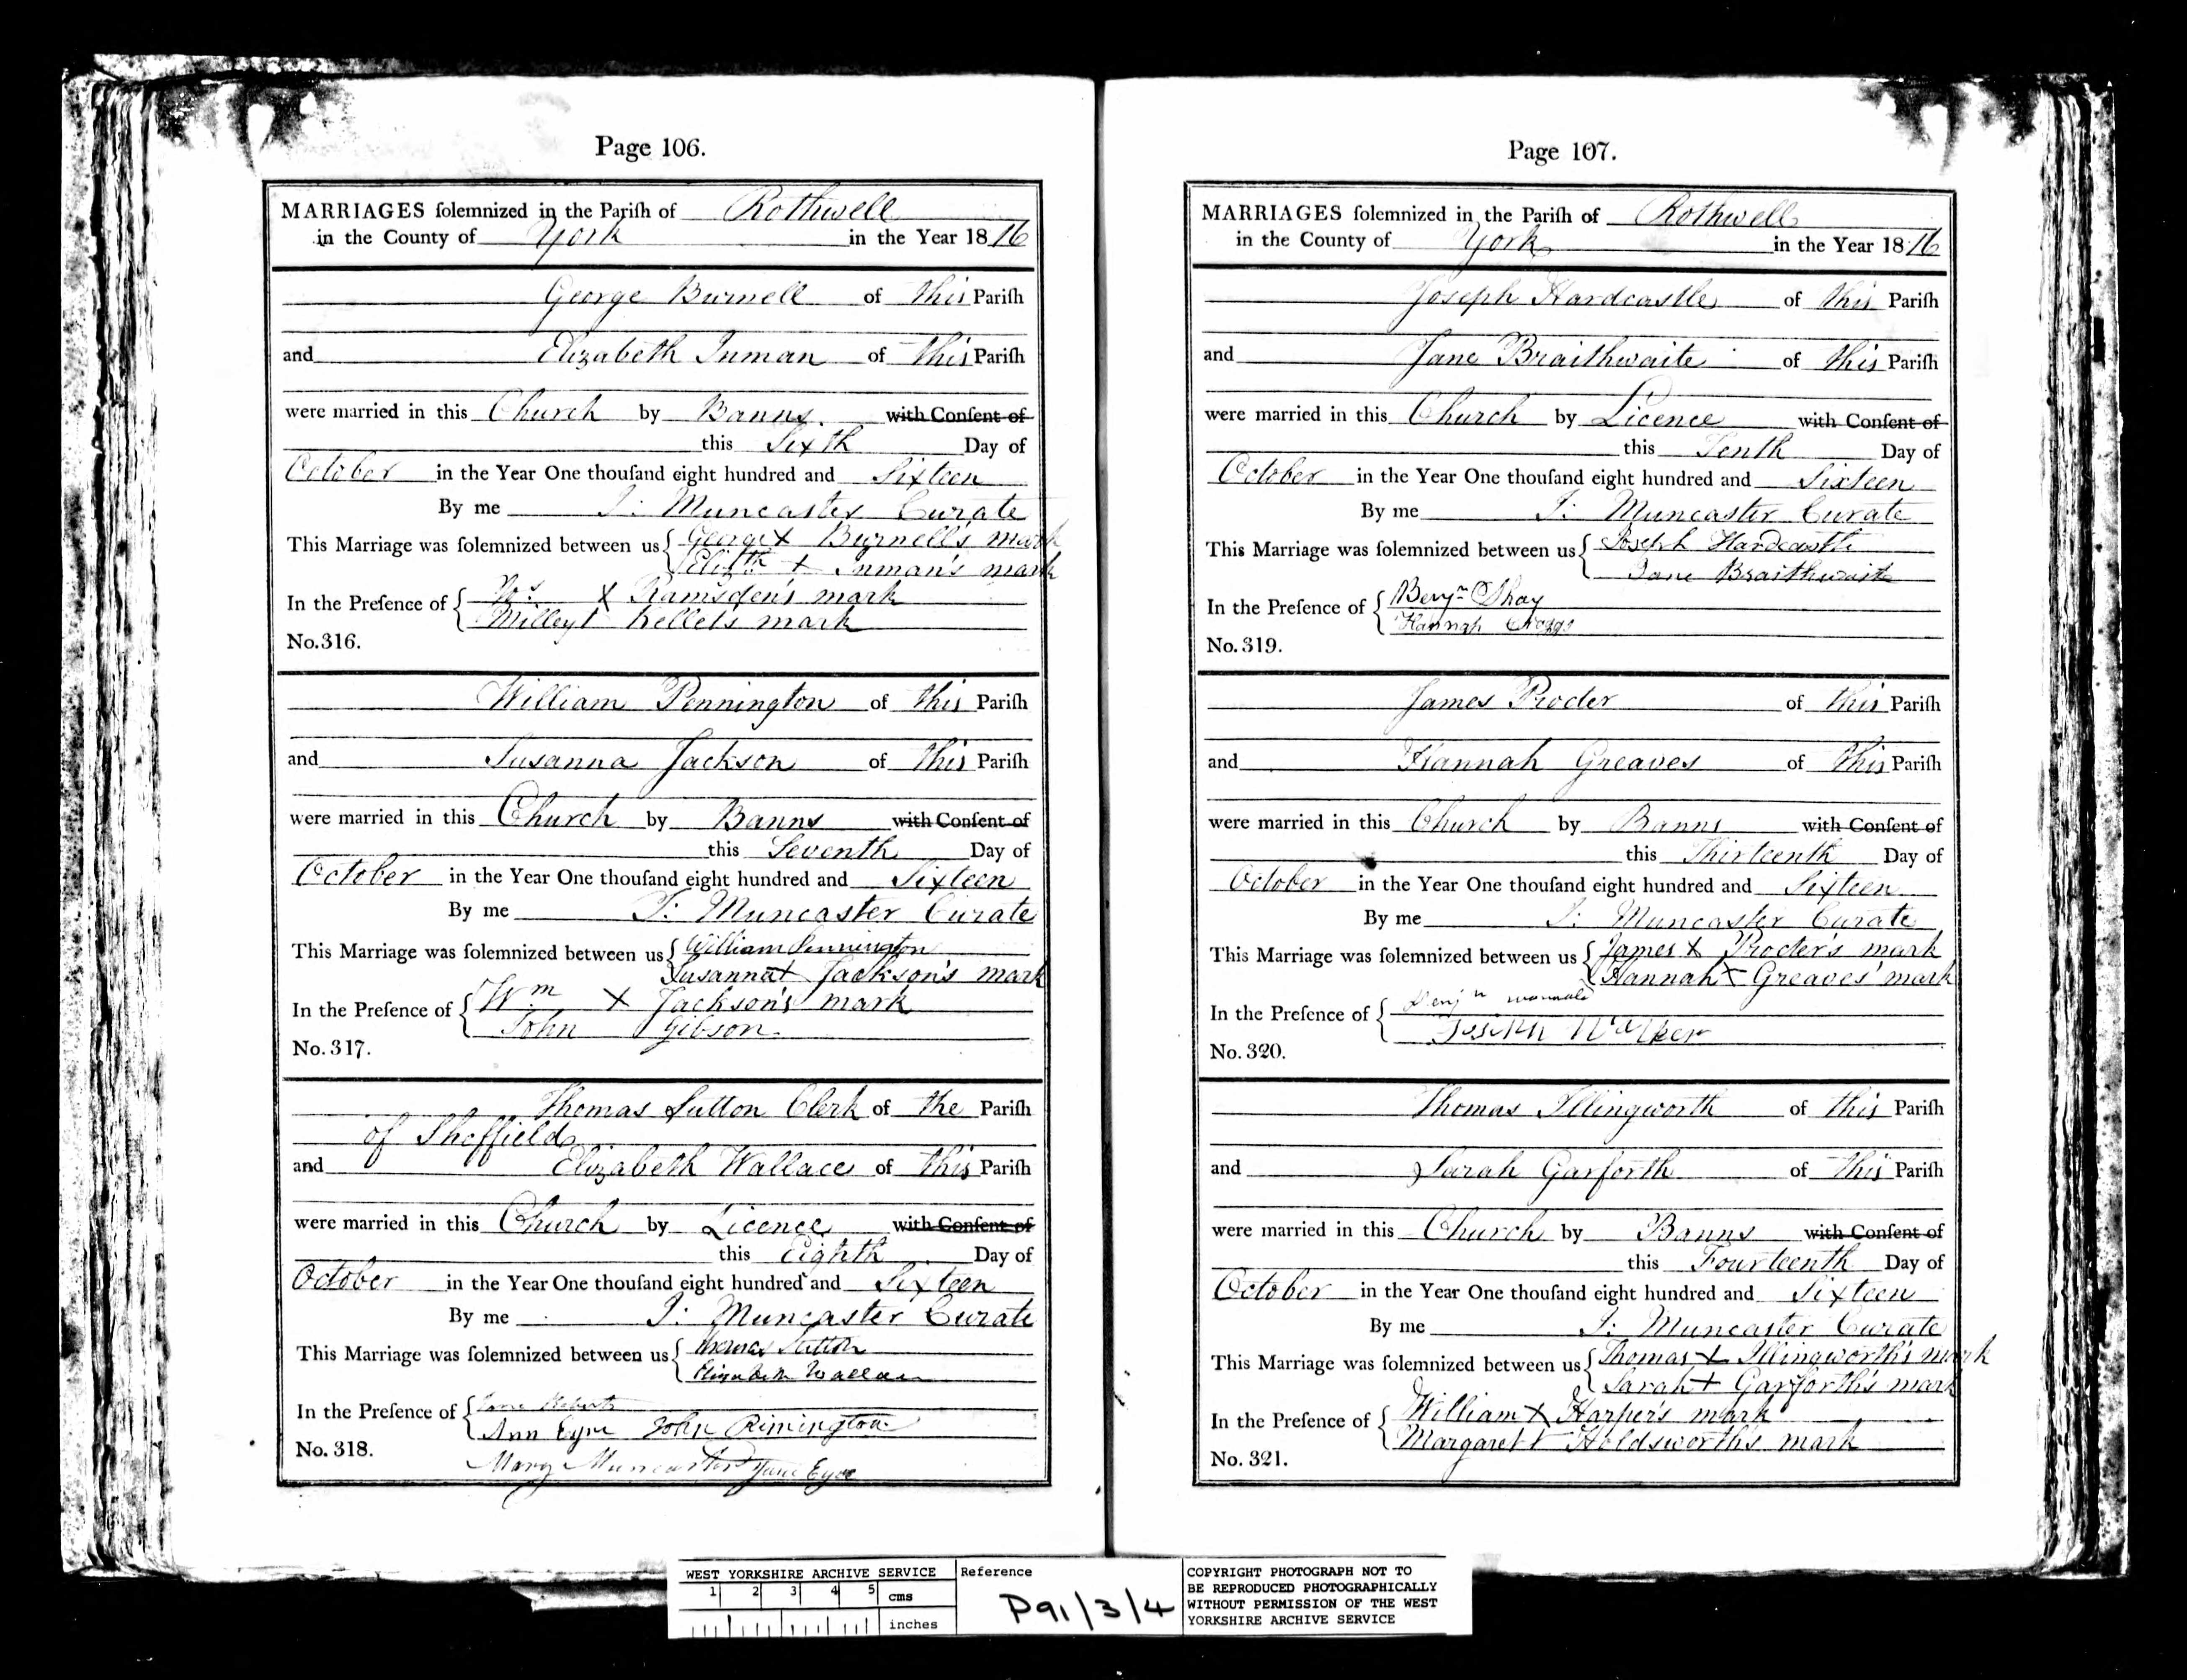 Page 106.
MARRIAGES ſolemnized in the Pariſh of Rothwell
in the County of York in the Year 1816
George Burnell of this Pariſh
and Elizabeth Inman of this Pariſh
were married in this Church by Banns with Conſent of
this Sixth Day of
October in the Year One thouſand eight hundred and Sixteen
By me J: Muncaster Curate
This Marriage was ſolemnized between us George X Burnell's mark
Elizth + Inman's mark
In the Preſence of X Ramsden's mark
Milley + Kellets mark
No. 316.
William Pennington of this Pariſh
and Susanna Jackson of this Pariſh
were married in this Church by Banns with Conſent of
this Seventh Day of
October in the Year One thouſand eight hundred and Sixteen
By me J: Muncaster Curate
This Marriage was ſolemnized between us William Pennington
Susanna + Jackson's mark
In the Preſence of Wm X Jackson's mark
John Gibson
No. 317.
Thomas Sutton Clerk of the Pariſh
of Sheffield
and Elizabeth Wallace of this Pariſh
were married in this Church by Licence with Conſent of
this Eighth Day of
October in the Year One thouſand eight hundred and Sixteen
By me J: Muncaster Curate
This Marriage was ſolemnized between us Thomas Sutton
Elizabeth Wallace
In the Preſence of
Ann Eyre John Rimington
No. 318.
Mary Muncaster Jane Eyre
Page 107.
MARRIAGES ſolemnized in the Pariſh of Rothwell
in the County of York in the Year 1816
Joseph Hardcastle of this Pariſh
and Jane Braithwaite of this Pariſh
were married in this Church by Licence with Conſent of
this Tenth Day of
October in the Year One thouſand eight hundred and Sixteen
By me J: Muncaster Curate
This Marriage was ſolemnized between us Joseph Hardcastle
Jane Braithwaite
In the Preſence of Benjn Shay
Hannah
No. 319.
James Procter of this Pariſh
and Hannah Greaves of this Pariſh
were married in this Church by Banns with Conſent of
this Thirteenth Day of
October in the Year One thouſand eight hundred and Sixteen
By me J: Muncaster Curate
This Marriage was ſolemnized between us James X Procter's mark
Hannah X Greaves' mark
In the Preſence of Benjn
Joseph Walker
No. 320.
Thomas Illingworth of this Pariſh
and Sarah Garforth of this Pariſh
were married in this Church by Banns with Conſent of
this Fourteenth Day of
October in the Year One thouſand eight hundred and Sixteen
By me J: Muncaster Curate
This Marriage was ſolemnized between us Thomas X Illingworth's mark
Sarah + Garforth's mark
In the Preſence of William X Harper's mark
Margaret + Holdsworth's mark
No. 321.
WEST YORKSHIRE ARCHIVE SERVICE
1 2 3 4 5 cms
inches
Reference
P91/3/4
COPYRIGHT PHOTOGRAPH NOT TO
BE REPRODUCED PHOTOGRAPHICALLY
WITHOUT PERMISSION OF THE WEST
YORKSHIRE ARCHIVE SERVICE